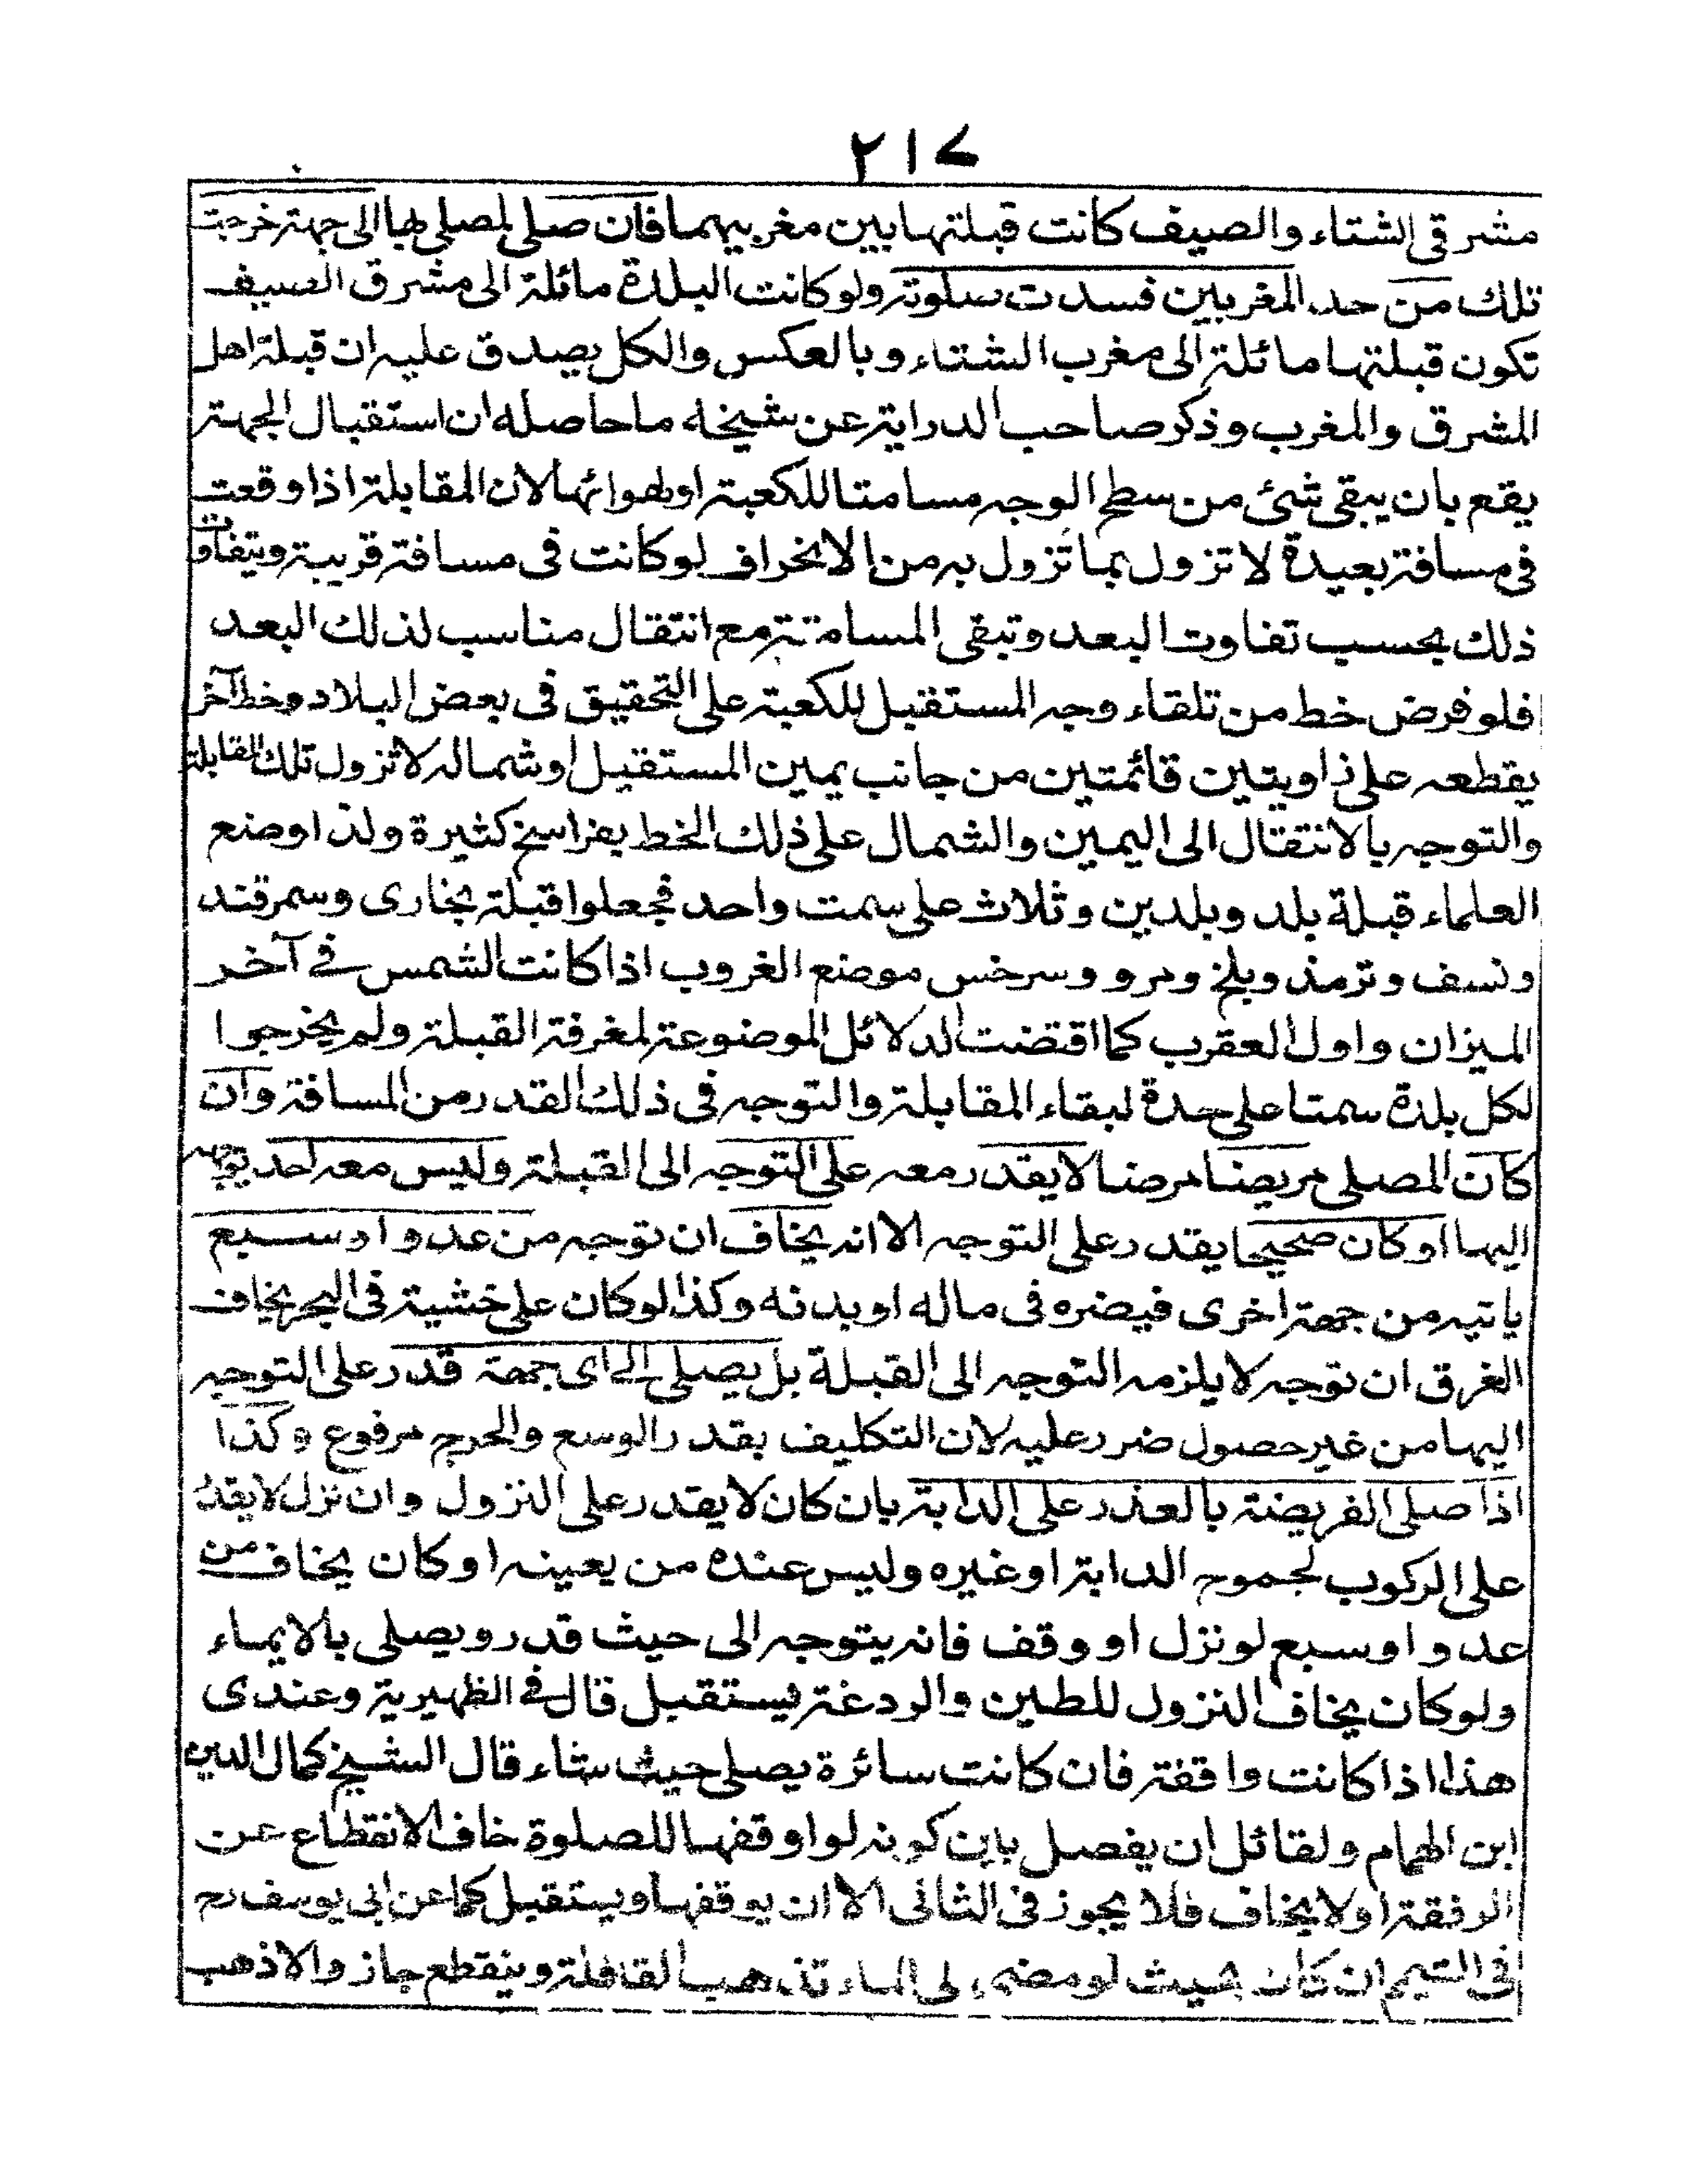 ٢١٧
مشرقى الشتاء والصيف كانت قبلتها بين مغربيهما فان صلى المصلى بها الى جهة خرجت
تلك من حد المغربين فسدت صلوته ولو كانت البلدة مائلة الى مشرق الصيف
تكون قبلتها مائلة الى مغرب الشتاء وبالعكس والكل يصدق عليه ان قبلة اهل
المشرق والمغرب وذكر صاحب الدراية عن شيخه ما حاصله ان استقبال الجهة
يقع بان يبقى شئ من سطح الوجه مسامتا للكعبة او لهوائها لان المقابلة اذا وقعت
فى مسافة بعيدة لا تزول بما تزول به من الانحراف لو كانت فى مسافة قريبة ويتفاوت
ذلك بحسب تفاوت البعد وتبقى المسامتة مع انتقال مناسب لذلك البعد
فلو فرض خط من تلقاء وجه المستقبل للكعبة على التحقيق فى بعض البلاد وخط آخر
يقطعه على زاويتين قائمتين من جانب يمين المستقبل او شماله لا تزول تلك المقابلة
والتوجه بالانتقال الى اليمين والشمال على ذلك الخط بفراسخ كثيرة ولذا وضع
العلماء قبلة بلد وبلدين وثلاث على سمت واحد فجعلوا قبلة بخارى وسمرقند
ونسف وترمذ وبلخ ومرو وسرخس موضع الغروب اذا كانت الشمس فى آخر
الميزان واول العقرب كما اقتضت الدلائل الموضوعة لمعرفة القبلة ولم يخرجوا
لكل بلدة سمتا على حدة لبقاء المقابلة والتوجه فى ذلك القدر من المسافة وان
كان المصلى مريضا مرضا لا يقدر معه على التوجه الى القبلة وليس معه احد يوجهه
اليها او كان صحيحا يقدر على التوجه الا انه يخاف ان توجه من عدو او سبع
ياتيه من جهة اخرى فيضره فى ماله او بدنه وكذا لو كان على خشبة فى البحر يخاف
الغرق ان توجه لا يلزمه التوجه الى القبلة بل يصلى الى اى جهة قدر على التوجه
اليها من غير حصول ضرر عليه لان التكليف بقدر الوسع والحرج مرفوع وكذا
اذا صلى الفريضة بالعذر على الدابة بان كان لا يقدر على النزول وان نزل لا يقدر
على الركوب لجموح الدابة او غيره وليس عنده من يعينه او كان يخاف من
عدو او سبع لو نزل او وقف فانه يتوجه الى حيث قدر ويصلى بالايماء
ولو كان يخاف النزول للطين والردغة يستقبل قال فى الظهيرية وعندى
هذا اذا كانت واقفة فان كانت سائرة يصلى حيث شاء قال الشيخ كمال الدين
ابن الهمام ولقائل ان يفصل بين كونه لو اوقفها للصلوة خاف الانقطاع عن
الرفقة او لا يخاف فلا يجوز فى الثانى الا ان يوقفها ويستقبل كما عن ابى يوسف رح
فى التيمم ان كان بحيث لو مضى الى الماء تذهب القافلة وينقطع جاز والا ذهب